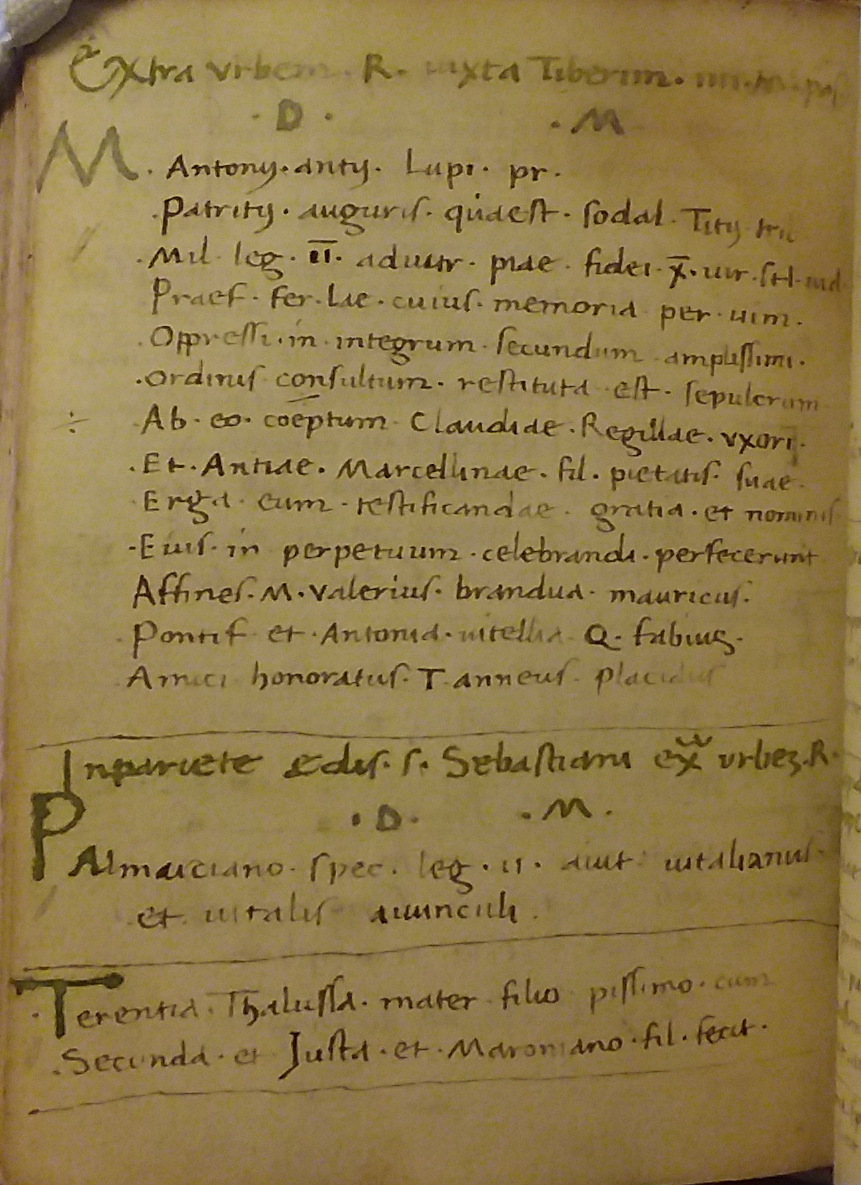 Extra vrbem · R · iuxta Tiberim ·
· D · · M
M · Antonij · antij · Lupi · pr ·
· Patritij · auguris · quaest · sodal · Titij
· Mil leg · II · adiutr · piae · fidei · X · uir · stl · iud
Praef · fer · Lae · cuius · memoria per · uim ·
· Oppressi · in · integrum · secundum amplissimi ·
· Ordinis consultum · restituta est · sepulcrum
÷ Ab · eo · coeptum Claudiae · Regillae · vxori
· Et · Antiae · Marcellinae · fil · pietatis suae ·
Erga eum · testificandae · gratia · et nominis
· Eius · in perpetuum · celebrandi · perfecerunt
Affines · M · valerius · brandua · mauricus ·
Pontif et · Antonia · uitellia Q · fabius ·
Amici honoratus · T anneus placidus
Inpariete edis · s · Sebastiani exª vrbez · R ·
· D · · M ·
P Almarciano · spec · leg · II · aiut uitalianus ·
et uitalis auunculi ·
· Terentia · Thalussa · mater filio piissimo · cum
· Secunda · et Justa · et · Maroniano · fil · fecit ·